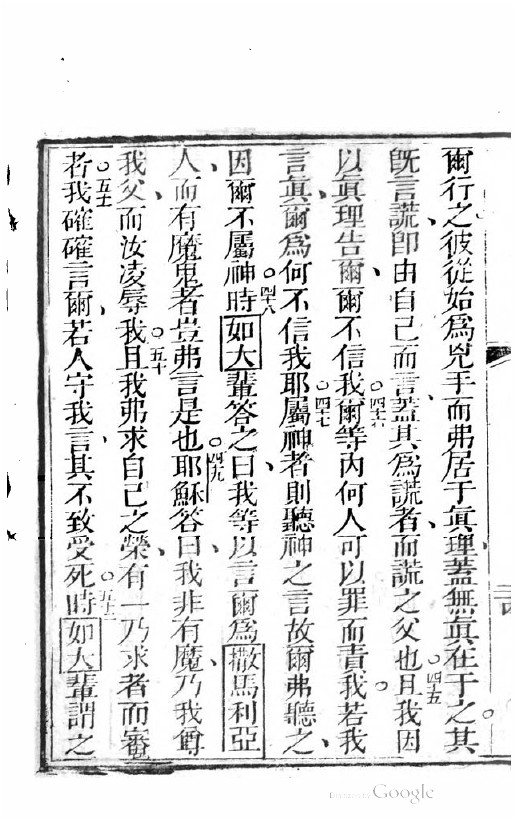 爾行之彼從始爲兇手而弗居于眞理蓋無眞在于之其
旣言謊卽由自己而言蓋其爲謊者而謊之父也且○四十五我因
以眞理告爾爾不信我○四十六爾等內何人可以罪而責我若我
言眞爾爲何不信我耶○四十七屬神者則聽神之言故爾弗聽之
因爾不屬神○四十八時如大輩答之曰我等以言爾爲撒馬利亞
人而有魔鬼者豈弗言是也○四九耶穌答曰我非有魔乃我尊
我父而汝凌辱我○五十且我弗求自己之榮有一乃求者而審
者○五十一我確確言爾若人守我言其不致受死○五十二時如大輩謂之
Google